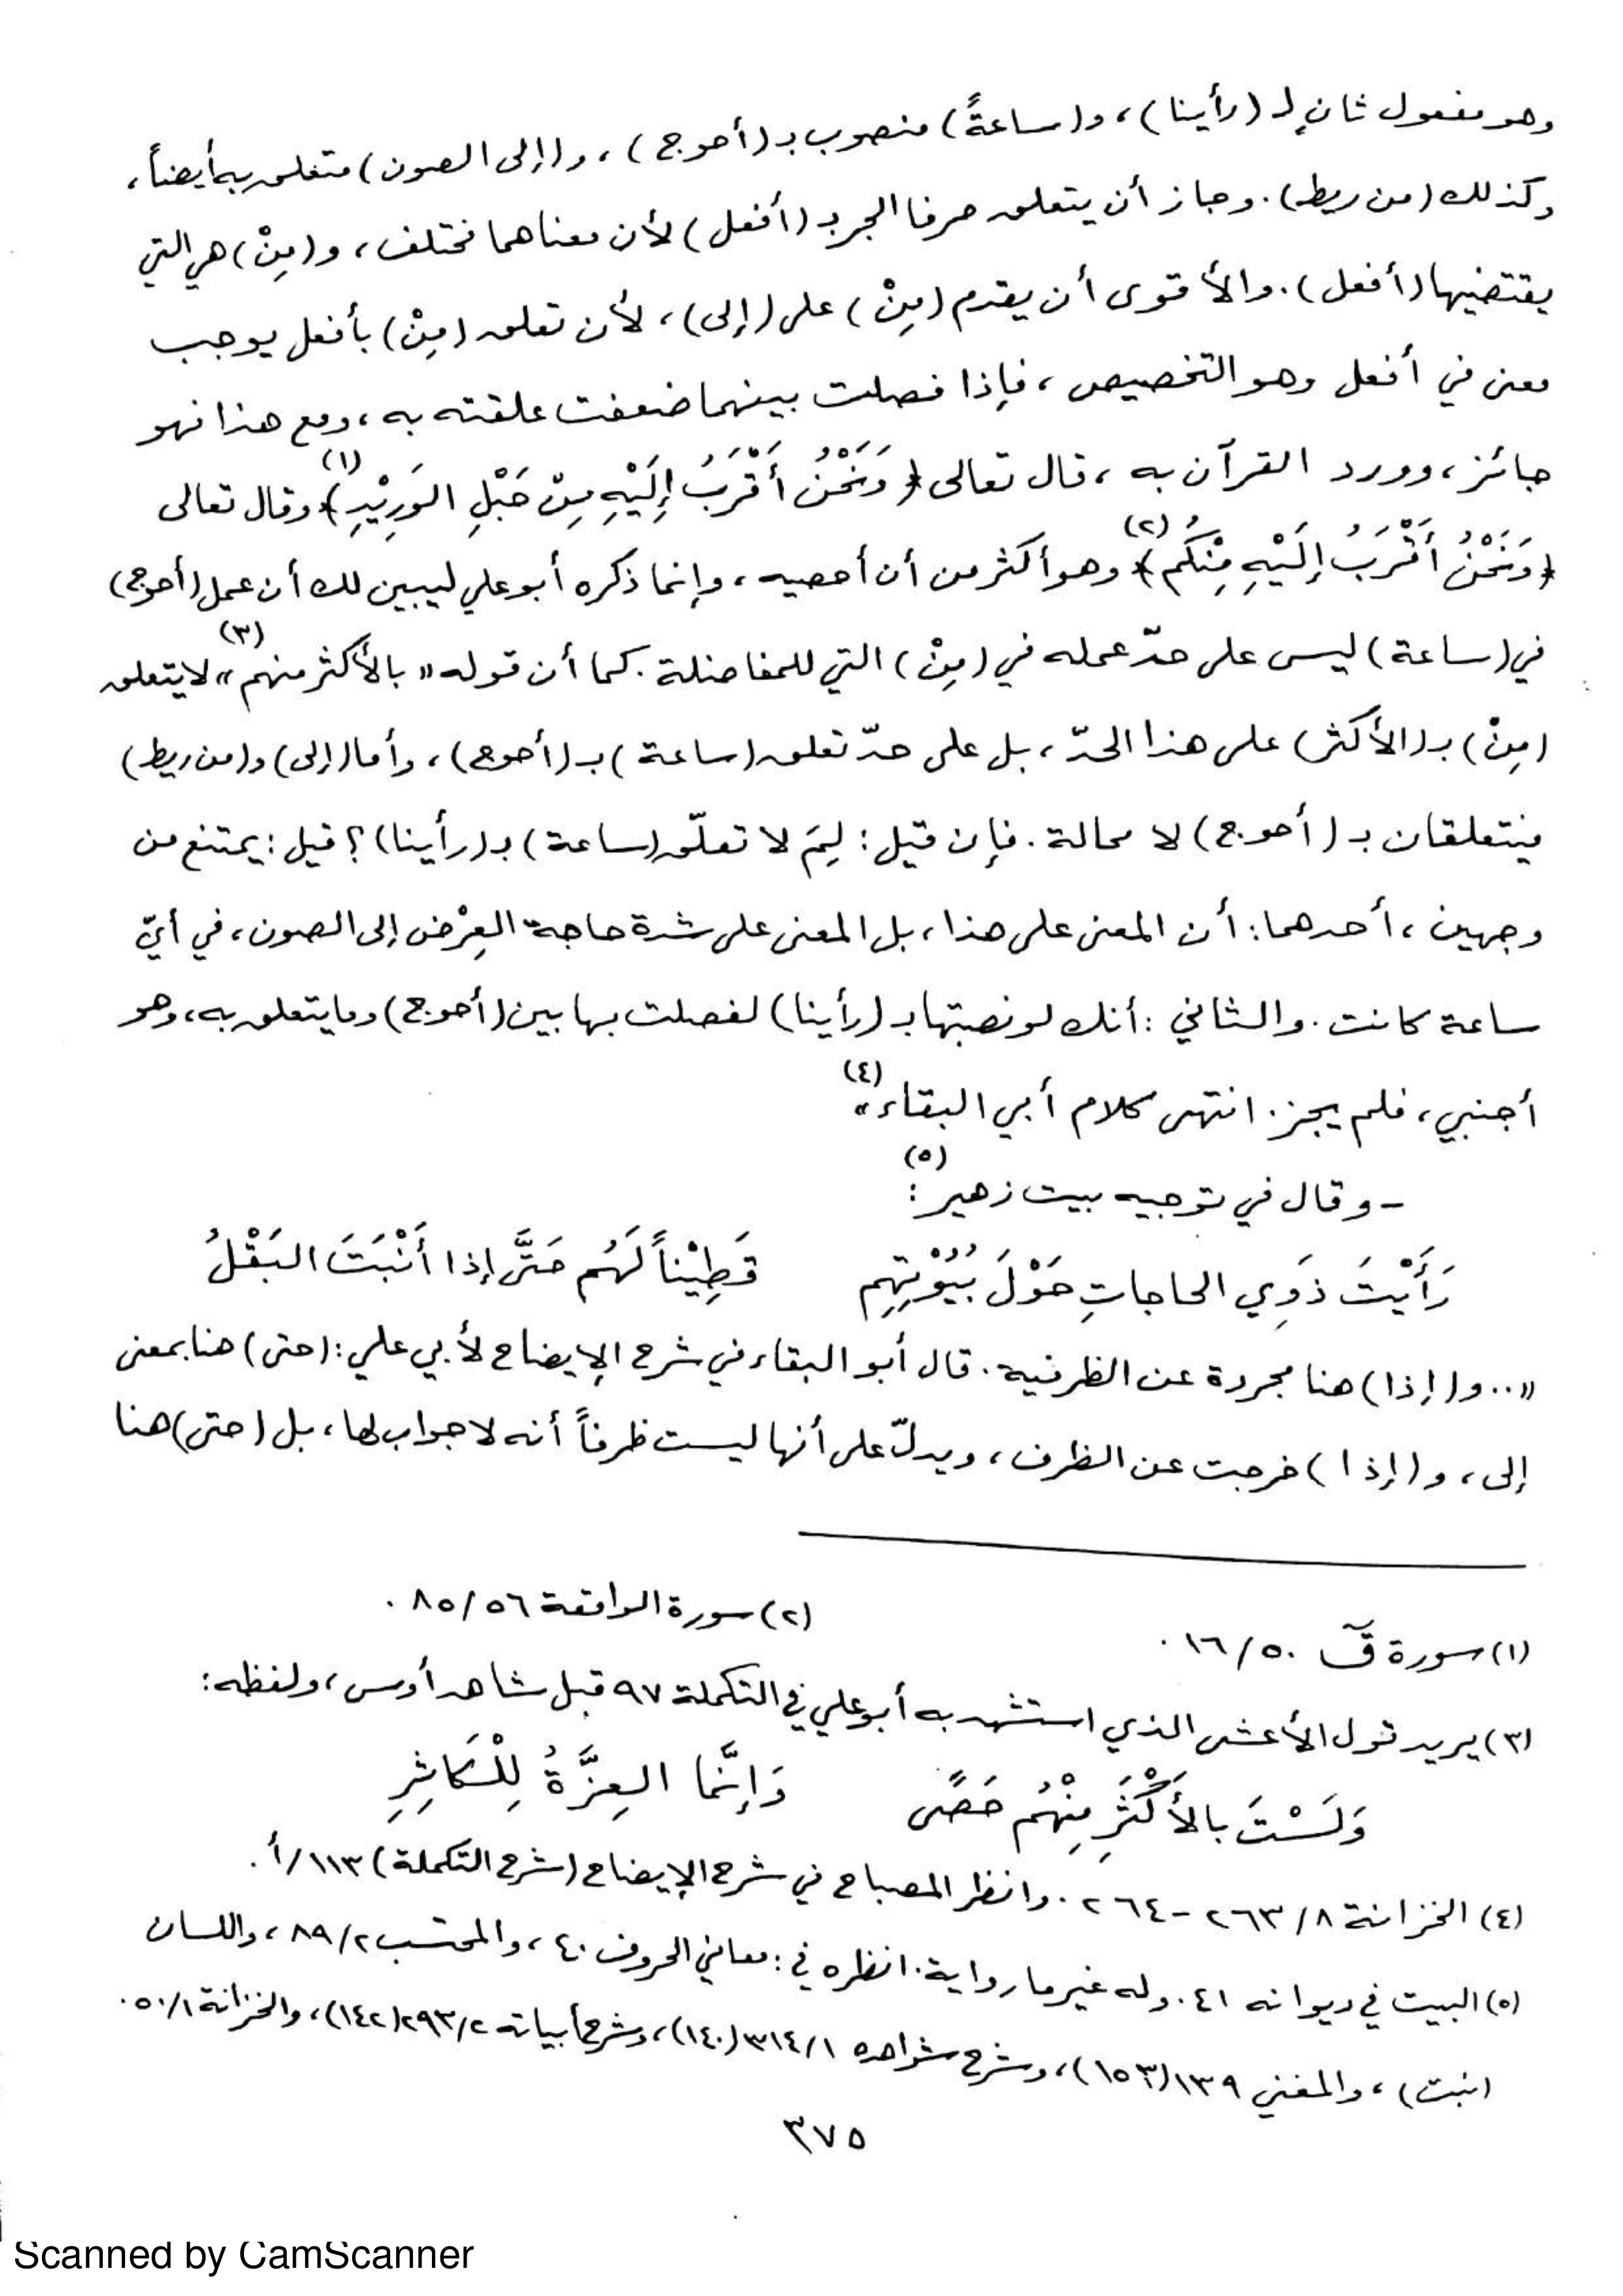 وهو مفعول ثانٍ لـ (رأينا)، و(ساعةً) منصوب بـ (أحوج)، و(إلى الصون) متعلق به أيضاً،
وكذلك (من ريط). وجاز أن يتعلق حرفا الجر بـ (أفعل) لأن معناهما مختلف، و(مِنْ) هي التي
يقتضيها (أفعل). والأقوى أن يقدم (مِنْ) على (إلى)، لأن تعلق (مِنْ) بأفعل يوجب
معنى في أفعل وهو التخصيص، فإذا فصلت بينهما ضعفت علقته به، ومع هذا فهو
جائز، وورد القرآن به، قال تعالى ﴿وَنَحْنُ أَقْرَبُ إِلَيْهِ مِنْ حَبْلِ الوَرِيْدِ﴾(١) وقال تعالى
﴿وَنَحْنُ أَقْرَبُ إِلَيْهِ مِنْكُم﴾(٢) وهو أكثر من أن أحصيه، وإنما ذكره أبو علي ليبين لك أن عمل (أحوج)
في (ساعة) ليس على حدّ عمله في (مِنْ) التي للمفاضلة. كما أن قوله «بالأكثر منهم»(٣) لا يتعلق
(مِنْ) بـ (الأكثر) على هذا الحدّ، بل على حدّ تعلق (ساعة) بـ (أحوج)، وأما (إلى) و(من ريط)
فيتعلقان بـ (أحوج) لا محالة. فإن قيل: لِمَ لا تعلّق (ساعة) بـ (رأينا)؟ قيل: يمتنع من
وجهين، أحدهما: أن المعنى على هذا، بل المعنى على شدة حاجة العِرْض إلى الصون، في أيّ
ساعة كانت. والثاني: أنك لو نصبتها بـ (رأينا) لفصلت بها بين (أحوج) وما يتعلق به، وهو
أجنبي، فلم يجز. انتهى كلام أبي البقاء»(٤)
- وقال في توجيه بيت زهير(٥):
رَأَيْتَ ذَوِي الحاجاتِ حَوْلَ بُيُوْتِهِم قَطِيْناً لَهُم حَتَّى إذا أَنْبَتَ البَقْلُ
«.. و(إذا) هنا مجردة عن الظرفية. قال أبو البقاء في شرح الإيضاح لأبي علي: (حتى) هنا بمعنى
إلى، و(إذا) خرجت عن الظرف، ويدلّ على أنها ليست ظرفاً أنه لا جواب لها، بل (حتى) هنا
(١) سورة قٓ ٥٠/١٦.
(٢) سورة الواقعة ٥٦/٨٥.
(٣) يريد قول الأعشى الذي استشهد به أبو علي في التكملة ٩٧ قبل شاهد أوس، ولفظه:
وَلَسْتَ بالأَكْثَرِ مِنْهُم حَصًى وَإِنَّمَا العِزَّةُ لِلْكَاثِرِ
(٤) الخزانة ٨/٢٦٣-٢٦٤. وانظر المصباح في شرح الإيضاح (شرح التكملة) ١١٣/أ.
(٥) البيت في ديوانه ٤١. وله غير ما رواية. انظره في: معاني الحروف ٤٠، والمحتسب ٢/٨٩، واللسان
(نبت)، والمغني ١٣٩(١٥٣)، وشرح شواهده ١/٣١٤(١٤٠)، وشرح أبياته ٢/٢٩٣(١٤٢)، والخزانة ١/٥٠.
٣٧٥
Scanned by CamScanner